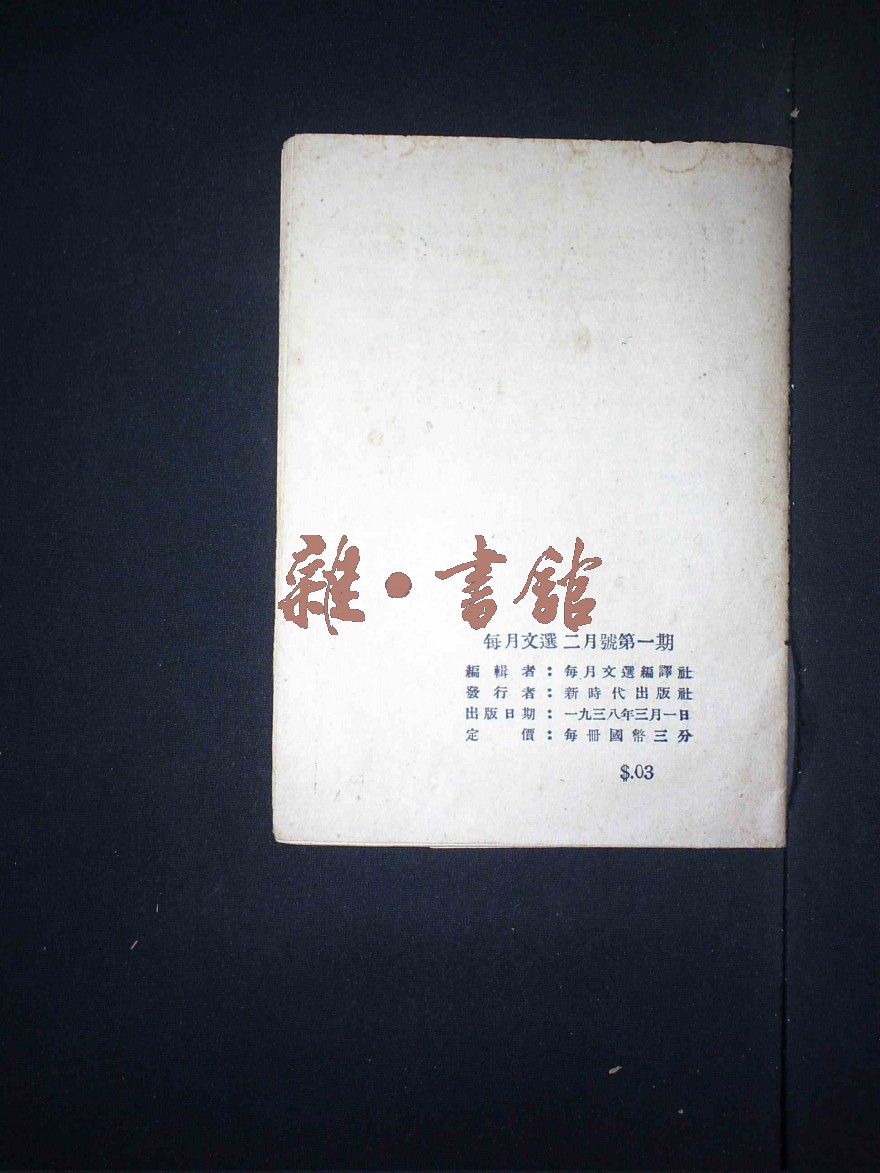 雜•書館
每月文選 二月號第一期
編輯者：每月文選編譯社
發行者：新時代出版社
出版日期：一九三八年三月一日
定價：每冊國幣三分
$.03